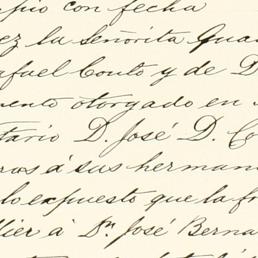 pio con fecha
ez la Señorita Gua
afael Couto y de D
mento otorgado en
tario D. José D. C
ras á sus herman
lo expuesto que la fr
lier á Dn. José Berna